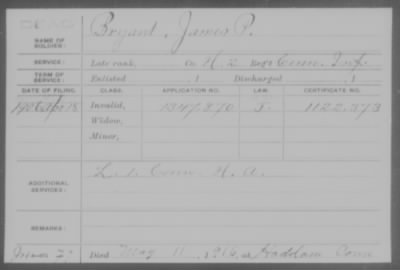 DEAD
NAME OF SOLDIER: Bryant, James P.
SERVICE: Late rank, Co. H. 2 Reg't Conn. Inf.
TERM OF SERVICE: Enlisted , 1 Discharged , 1
DATE OF FILING. CLASS. APPLICATION NO. LAW. CERTIFICATE NO.
Invalid, 1347.870 1122.373
Widow,
Minor,
ADDITIONAL SERVICES: Conn. H. A.
REMARKS:
Died May 11, 1916, at Haddam Conn